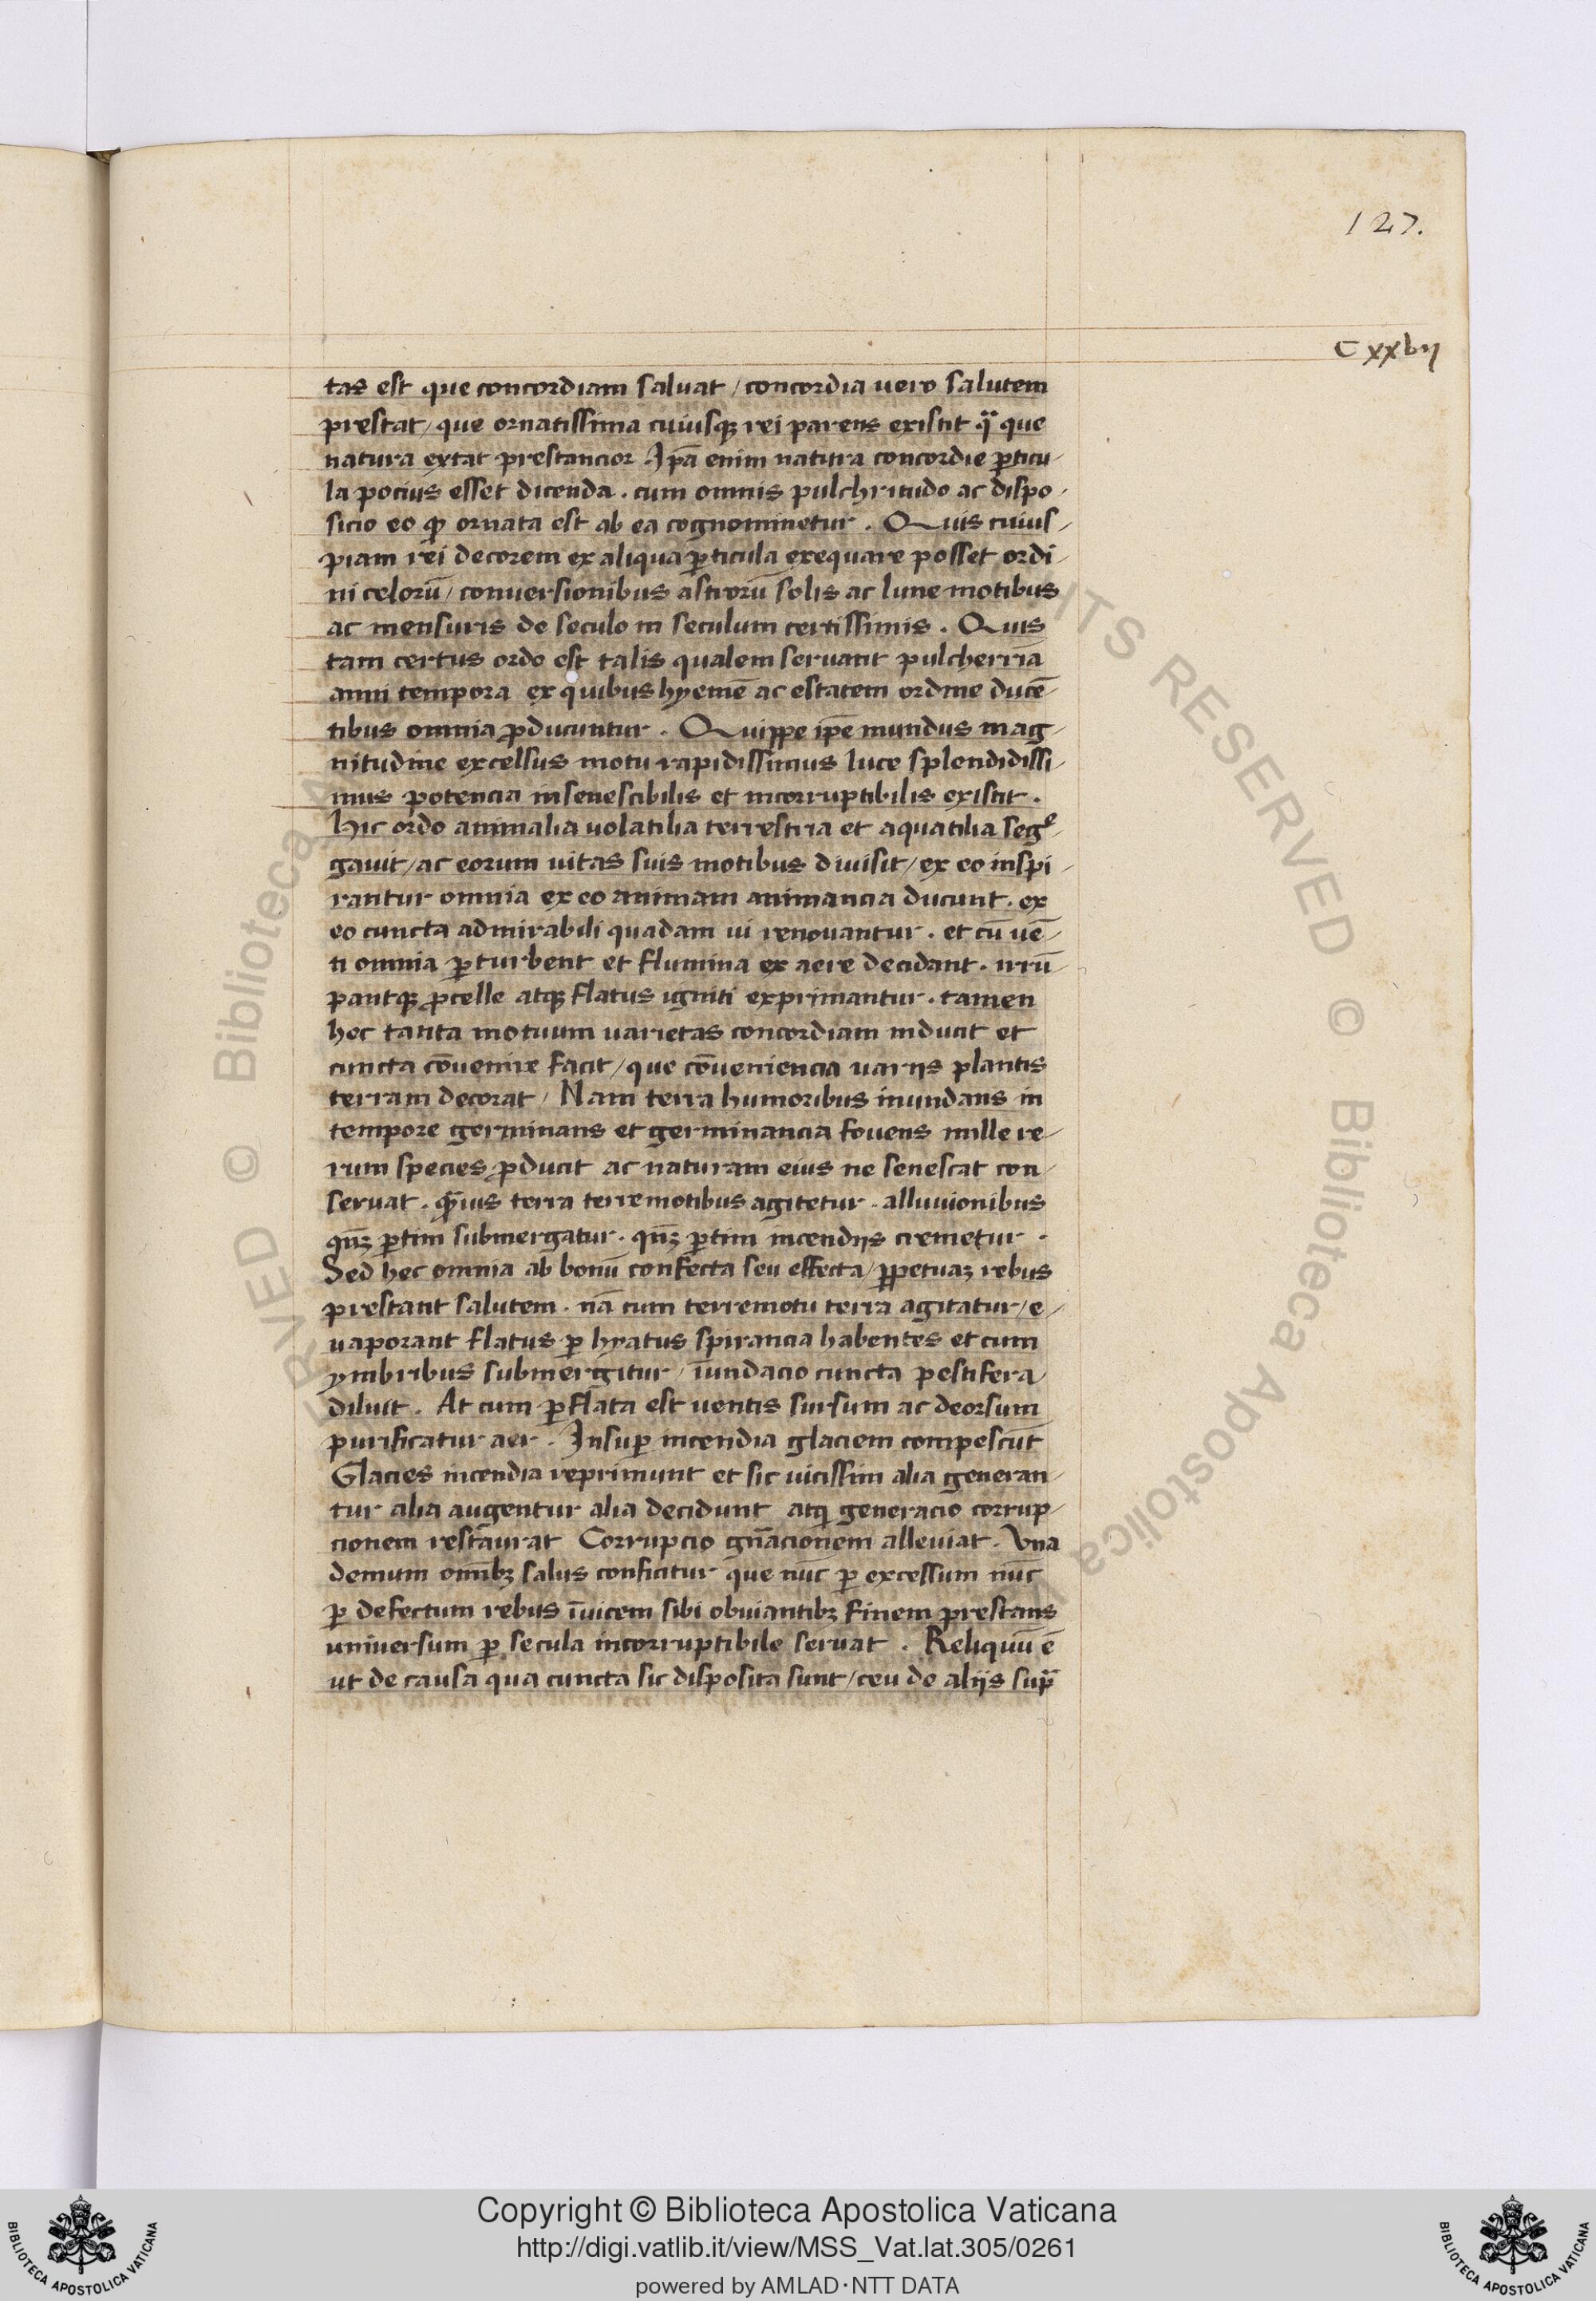 127.
Cxxbij
tas est que concordiam saluat / concordia uero salutem
prestat / que ornatissima cuiusqꝫ rei parens existit qͣ que
natura extat prestancior Ip̄a enim natura concordie ꝑticu-
la pocius esset dicenda . cum omnis pulchritudo ac dispo-
sicio eo ꝙ ornata est ab ea cognominetur . Quis cuius-
piam rei decorem ex aliqua ꝑticula exequare posset ordi-
ni celorū / conuersionibus astrorū solis ac lune motibus
ac mensuris de seculo in seculum certissimis . Quis
tam certus ordo est talis qualem seruant pulcherria
anni tempora ex quibus hyemē ac estatem ordine ducē-
tibus omnia ꝓducuntur . Quippe ip̄e mundus mag-
nitudine excelsus motu rapidissimus luce splendidissi-
mus potencia insenescibilis et incorruptibilis existit .
Hic ordo animalia uolatilia terrestria et aquatilia segͤ-
gauit / ac eorum uitas suis motibus diuisit / ex eo inspi-
rantur omnia ex eo animam animancia ducunt . ex
eo cuncta admirabili quadam ui renouantur . et cū uē-
ti omnia ꝑturbent et flumina ex aere decidant . irrū-
pantqꝫ ꝓcelle atqꝫ flatus igniti exprimantur . tamen
hec tanta motuum uarietas concordiam inducit et
cuncta cōuenire facit / que cōueniencia uarijs plantis
terram decorat / Nam terra humoribus inundans in
tempore germinans et germinancia fouens mille re-
rum species ꝓducit ac naturam eius ne senescat con-
seruat . terra terremotibus agitetur . alluuionibus
qn̄qꝫ ꝑtim submergatur . qn̄qꝫ ꝑtim incendijs cremetur .
Sed hec omnia ab bonū confecta seu effecta / ꝑpetuaꝫ rebus
prestant salutem . nā cum terremotu terra agitatur / e-
uaporant flatus ꝑ hyatus spirancia habentes et cum
ymbribus submergitur / īundacio cuncta pestifera
diluit . At cum ꝑflata est uentis sursum ac deorsum
purificatur aer . Insuꝑ incendia glaciem compescūt
Glacies incendia reprimunt et sic uicissim alia generan-
tur alia augentur alia decidunt atqꝫ generacio corrup-
cionem restaurat Corrupcio gn̄acionem alleuiat . Vna
demum omībꝫ salus conficitur que nūc ꝑ excessum nūc
ꝑ defectum rebus īuicem sibi obuiantibꝫ finem prestans
uniuersum ꝑ secula incorruptibile seruat . Reliquū ē
ut de causa qua cuncta sic disposita sunt / ceu de alijs supͣ
© Biblioteca Apostolica Vaticana
HTS RESERVED © Biblioteca Apostolica
Copyright © Biblioteca Apostolica Vaticana
http://digi.vatlib.it/view/MSS_Vat.lat.305/0261
powered by AMLAD·NTT DATA
BIBLIOTECA APOSTOLICA VATICANA
BIBLIOTECA APOSTOLICA VATICANA